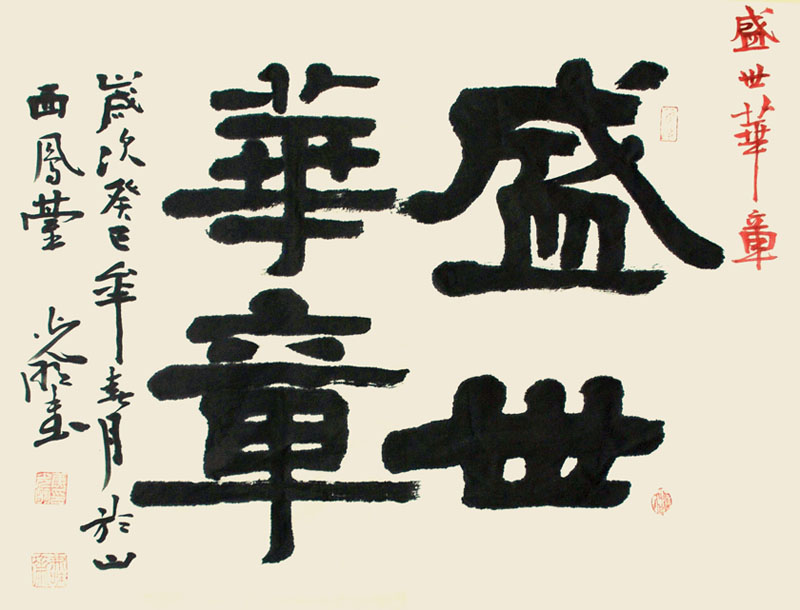 盛世華章
盛世
華章
歲次癸巳年春月於山
西鳳堂